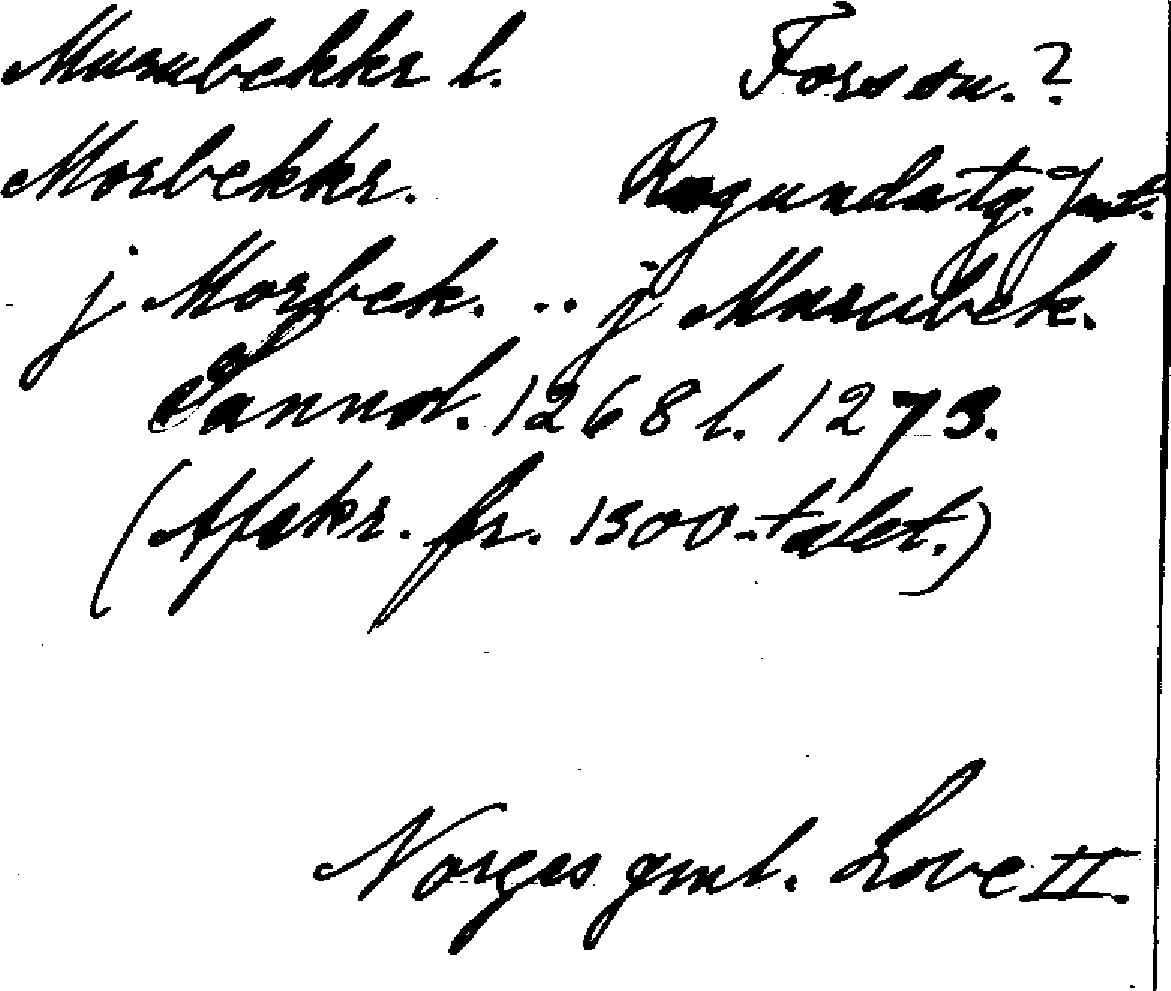 Murubekkr l. Fors sn.?
Morbekkr. Ragundatg. Jmt.
j Morbek. .. j Murubek.
Sannol. 1268 l. 1273.
(Afskr. fr. 1300-talet.)
Norges gml. Love II.